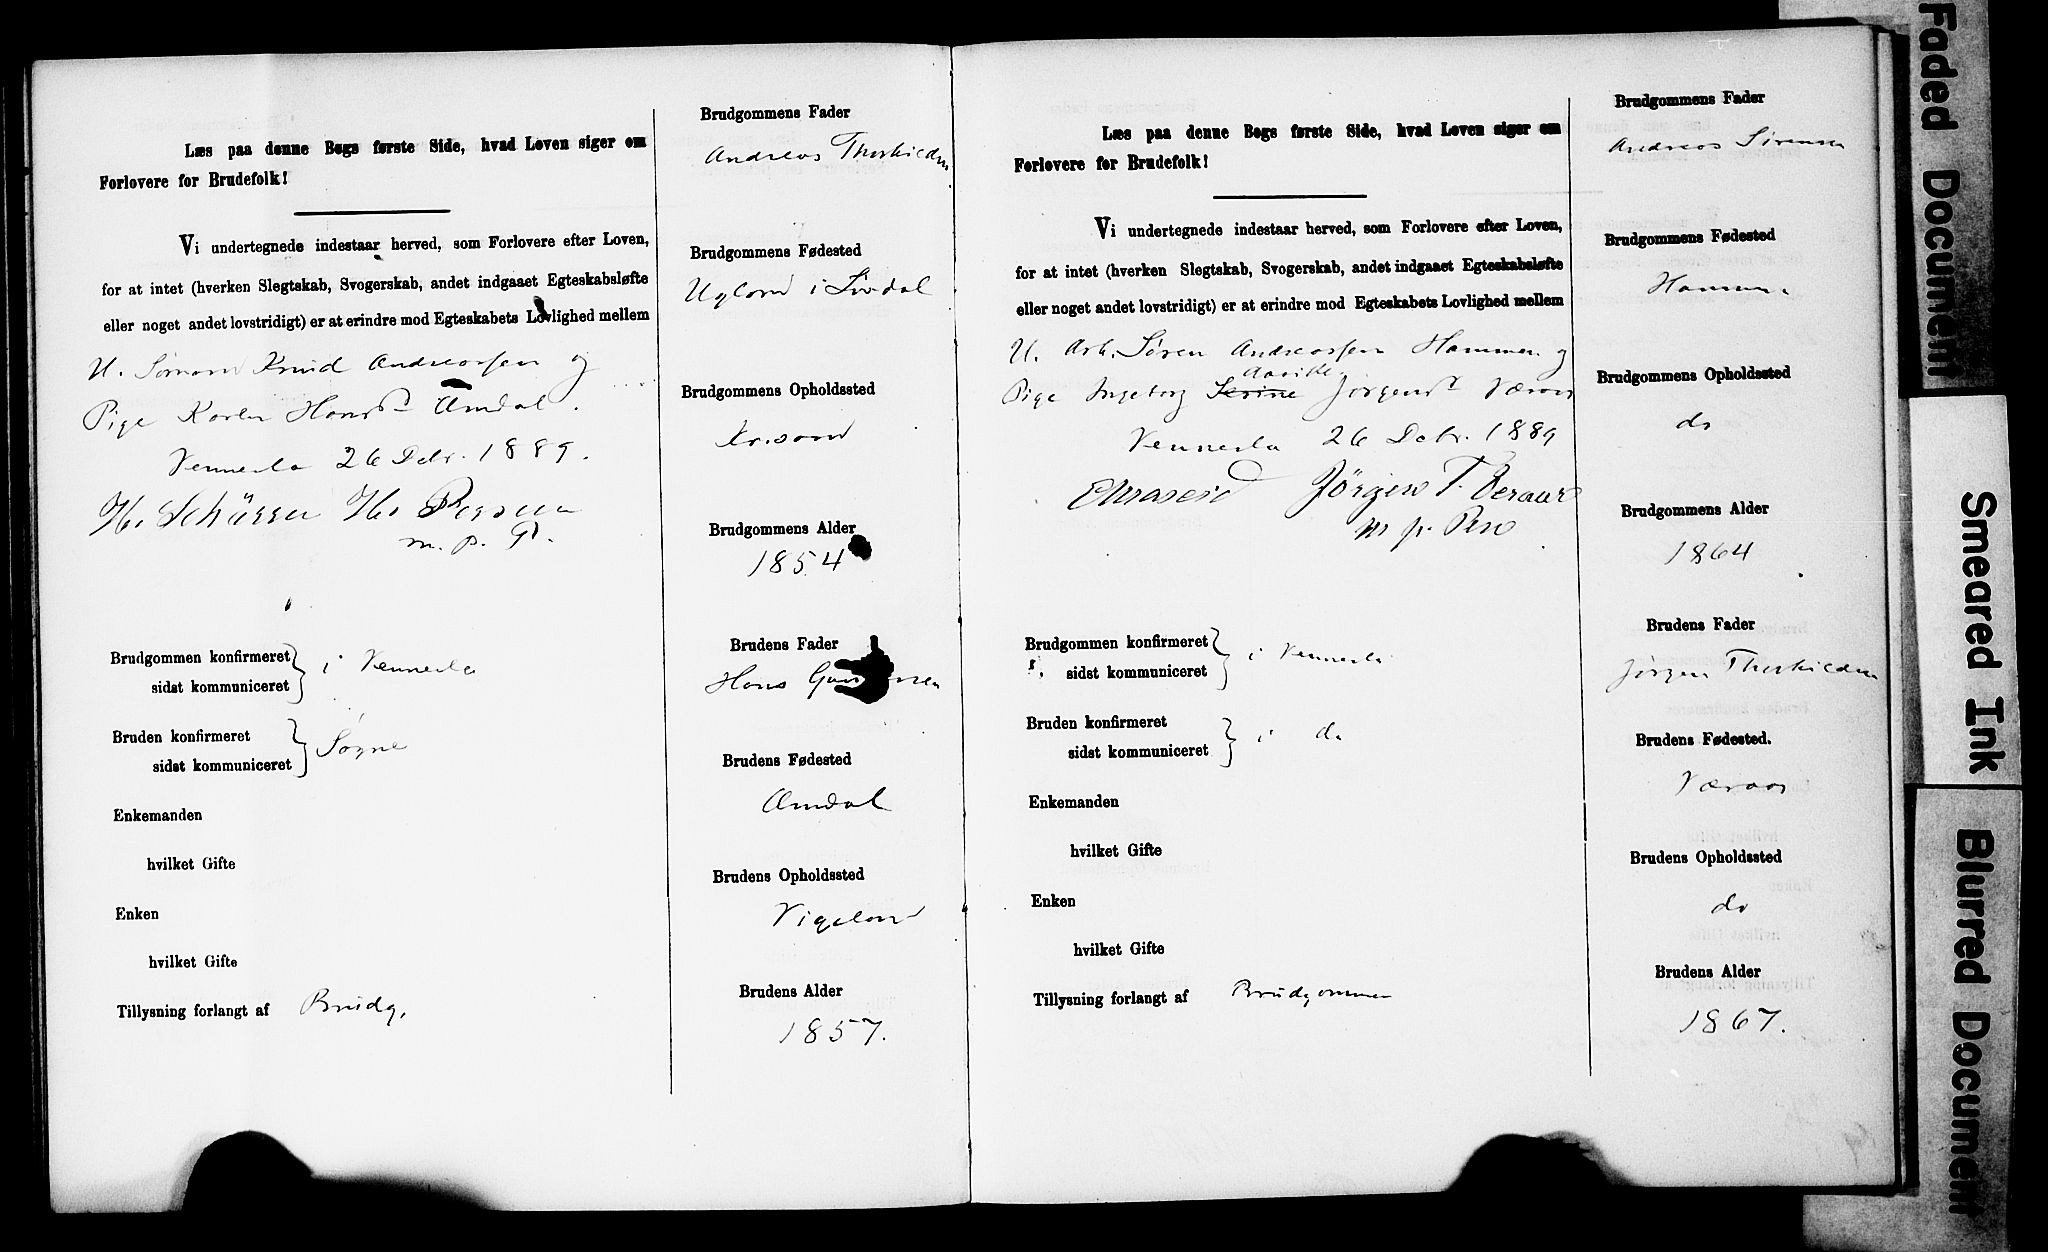 Læs paa denne Bogs første Side, hvad Loven siger om
Forlovere for Brudefolk!
Vi undertegnede indestaar herved, som Forlovere efter Loven,
for at intet (hverken Slegtskab, Svogerskab, andet indgaaet Egteskabsløfte
eller noget andet lovstridigt) er at erindre mod Egteskabets Lovlighed mellem
U. Sømand Knud Andreassen og
Pige Karen Hansd Amdal.
Vennesla 26 Decbr. 1889.
m. p. P.
Brudgommen konfirmeret
sidst kommuniceret
i Vennesla
Bruden konfirmeret
sidst kommuniceret
Søgne
Enkemanden
hvilket Gifte
Enken
hvilket Gifte
Tillysning forlangt af Brudg.
Brudgommens Fader
Andreas Thorkildsen
Brudgommens Fødested
Ugland i
Brudgommens Opholdssted
Krsand
Brudgommens Alder
1854
Brudens Fader
Hans
Brudens Fødested
Amdal
Brudens Opholdssted
Vigeland
Brudens Alder
1857.
Læs paa denne Bogs første Side, hvad Loven siger om
Forlovere for Brudefolk!
Vi undertegnede indestaar herved, som Forlovere efter Loven,
for at intet (hverken Slegtskab, Svogerskab, andet indgaaet Egteskabsløfte
eller noget andet lovstridigt) er at erindre mod Egteskabets Lovlighed mellem
U. Arb. Søren Andreassen Hammen og
Pige Ingeborg Jørgensd Væraas
Vennesla 26 Decbr. 1889
Jørgen T. Veraas
m p. Pen
Brudgommen konfirmeret
sidst kommuniceret
i Vennesla
Bruden konfirmeret
sidst kommuniceret
i do
Enkemanden
hvilket Gifte
Enken
hvilket Gifte
Tillysning forlangt af Brudgommen
Brudgommens Fader
Andreas Sørensen
Brudgommens Fødested
Hammen
Brudgommens Opholdssted
do
Brudgommens Alder
1864
Brudens Fader
Jørgen Thorkildsen
Brudens Fødested.
Væraas
Brudens Opholdssted
do
Brudens Alder
1867.
Faded Document
Smeared Ink
Blurred Document